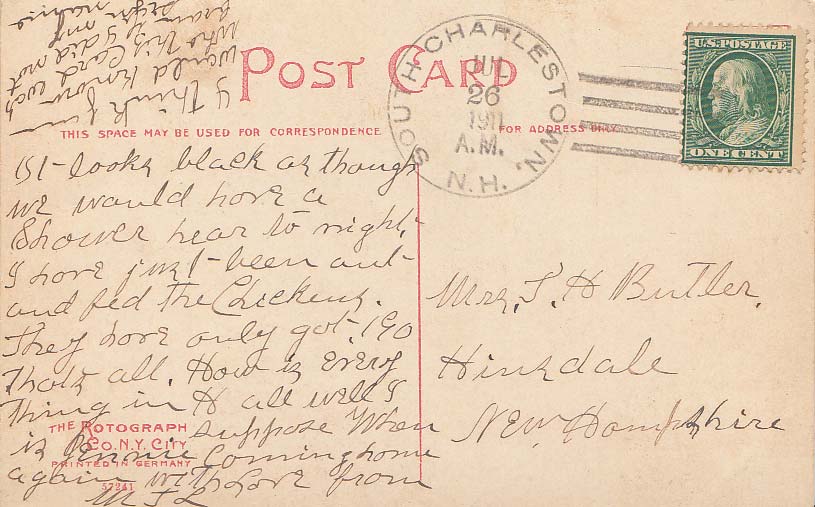 POST CARD
THIS SPACE MAY BE USED FOR CORRESPONDENCE
FOR ADDRESS ONLY
SOUTH CHARLESTOWN, N.H.
26
1911
A.M.
U.S. POSTAGE
ONE CENT
It looks black as though
we would have a
Shower hear to night,
I have just been out
and fed the Chickens.
They have only got 190
thats all. How is every
thing in H all well I
suppose When
is Jennie Coming home
again with love from
I think you
would know
who this Card was
from if I did not
sign my
name
Mrs. J. H Butler,
Hinsdale
New Hampshire
THE ROTOGRAPH
CO. N.Y. CITY
PRINTED IN GERMANY
57241